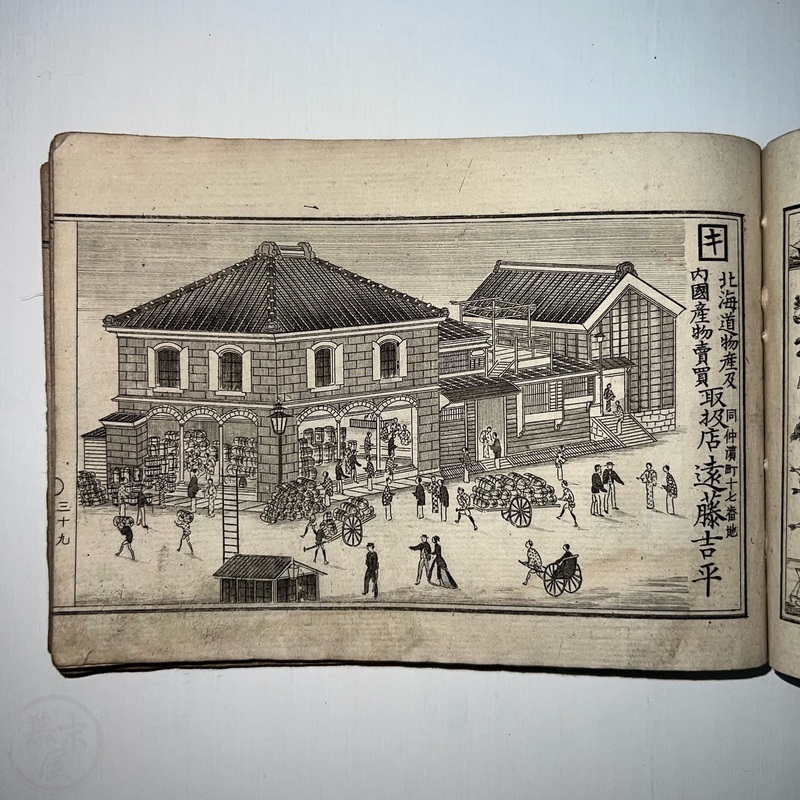 キ
北海道物産及
内國産物賣買取扱店
同仲濱町十七番地
遠藤吉平
三十九
幕末屋